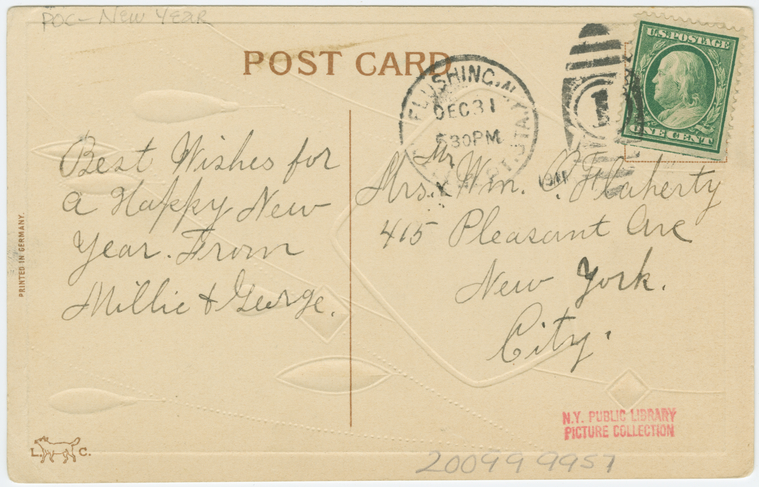 POC - New Year
POST CARD
U.S. POSTAGE
ONE CENT
FLUSHING, N.Y.
DEC 31
530PM
1
1911
Best Wishes for
a Happy New
Year. From
Millie & George.
Mr
Mrs. & Wm. P. Flaherty
415 Pleasant Ave
New York.
City.
PRINTED IN GERMANY.
L. C.
N.Y. PUBLIC LIBRARY
PICTURE COLLECTION
20099 9957